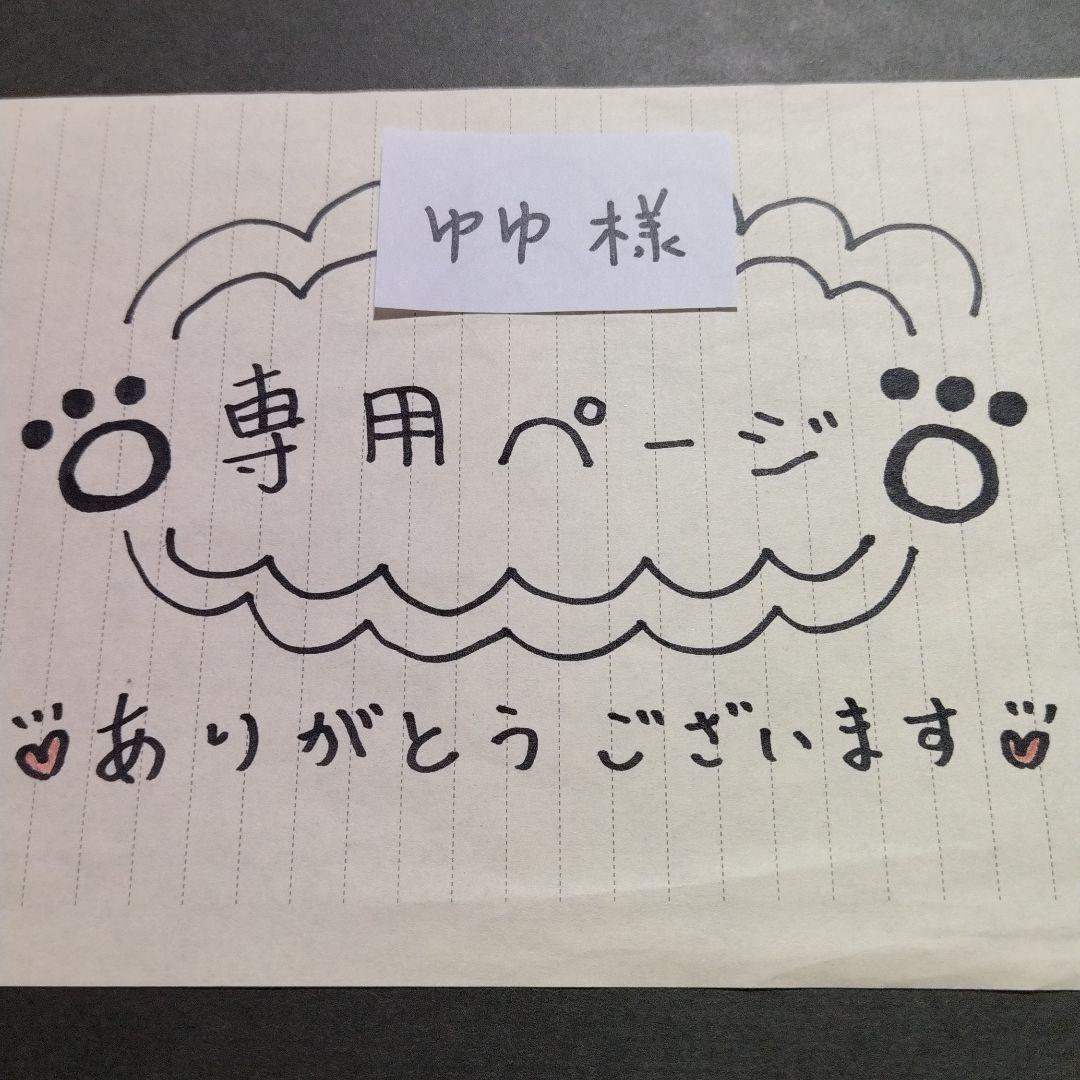 ゆゆ 様
専用ページ
ありがとうございます